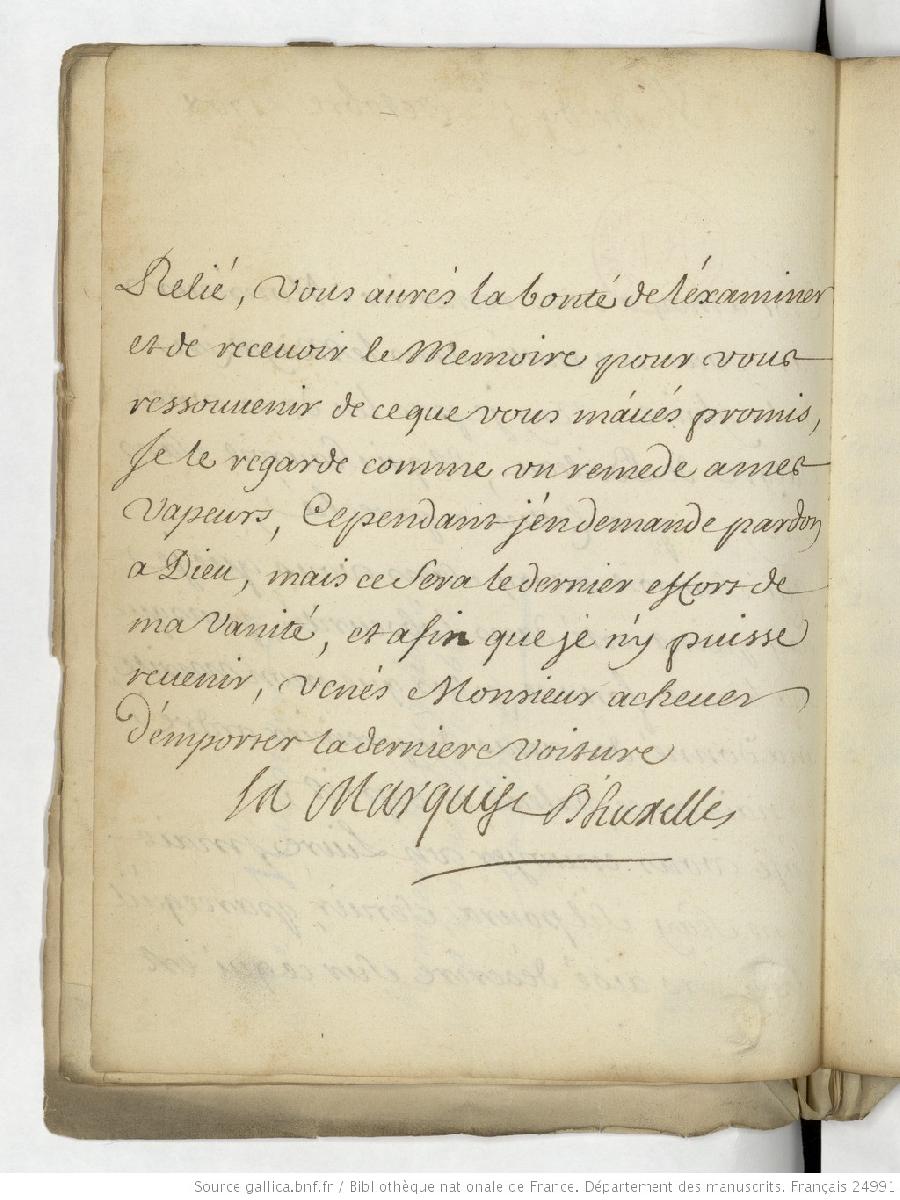 Relié, vous aurés la bonté de l'éxaminer
et de receuoir le Memoire pour vous
ressouuenir de ce que vous m'aués promis,
Je le regarde comme vn remede a mes
vapeurs, Cependant j'én demande pardon
a Dieu, mais ce sera le dernier effort de
ma vanité, et afin que je n'y puisse
reuenir, venés Monsieur acheuer
D'émporter la derniere voiture
la Marquise D'huxelles
Source gallica.bnf.fr / Bibliothèque nationale de France. Département des manuscrits. Français 24991